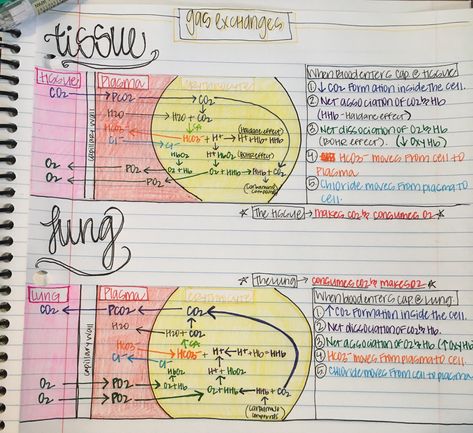 gas exchanges
tissue
tissue
Plasma
CO2
PCO2
CO2
H2O
H2O + CO2
CA
HCO3-
HCO3- + H+ → H+ + HHb
(Haldane effect)
Cl-
Cl-
HbO2
H+ + HbO2
(Bohr effect)
O2
O2
O2 + Hb
O2 + HHb
Hb + CO2
O2
PO2
(Carbamino compounds)
capillary wall
When blood enters cap @ tissue
① ↓ CO2 formation inside the cell.
② Net association of CO2 & Hb
(HHb - Haldane effect)
③ Net dissociation of O2 & Hb
(Bohr effect) (↓ OxyHb)
④ HCO3- moves from cell to
plasma
⑤ Chloride moves from plasma to
cell.
☆ The tissue → makes CO2 & consumes O2 ☆
lung
☆ The lung → consumes CO2 & makes O2 ☆
lung
Plasma
CO2
PCO2
CO2
H2O
H2O + CO2
CA
HCO3-
HCO3- + H+ ← H+ + Hb
HHb
Cl-
Cl-
HbO2
H+ + HbO2
O2
PO2
O2 + Hb
O2
PO2
O2 + HHb
HHb + CO2
(carbamino compounds)
capillary wall
When blood enters cap @ lung
① ↑ CO2 formation inside the cell.
② Net dissociation of CO2 & Hb.
③ Net association of O2 & Hb (↑ OxyHb)
④ HCO3- moves from plasma to cell.
⑤ Chloride moves from cell to plasma.